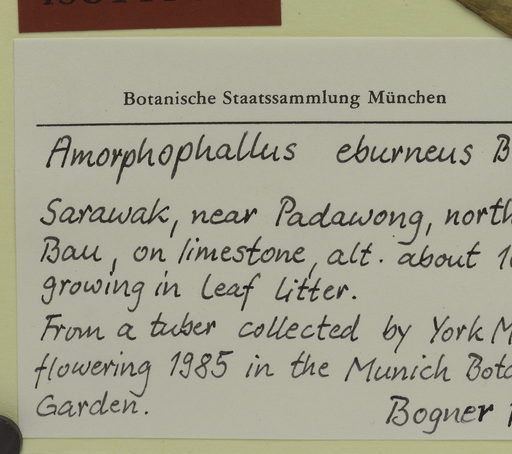 Botanische Staatssammlung München
Amorphophallus eburneus B
Sarawak, near Padawong, north
Bau, on limestone, alt. about
growing in leaf litter.
From a tuber collected by York
flowering 1985 in the Munich
Garden.
Bogner